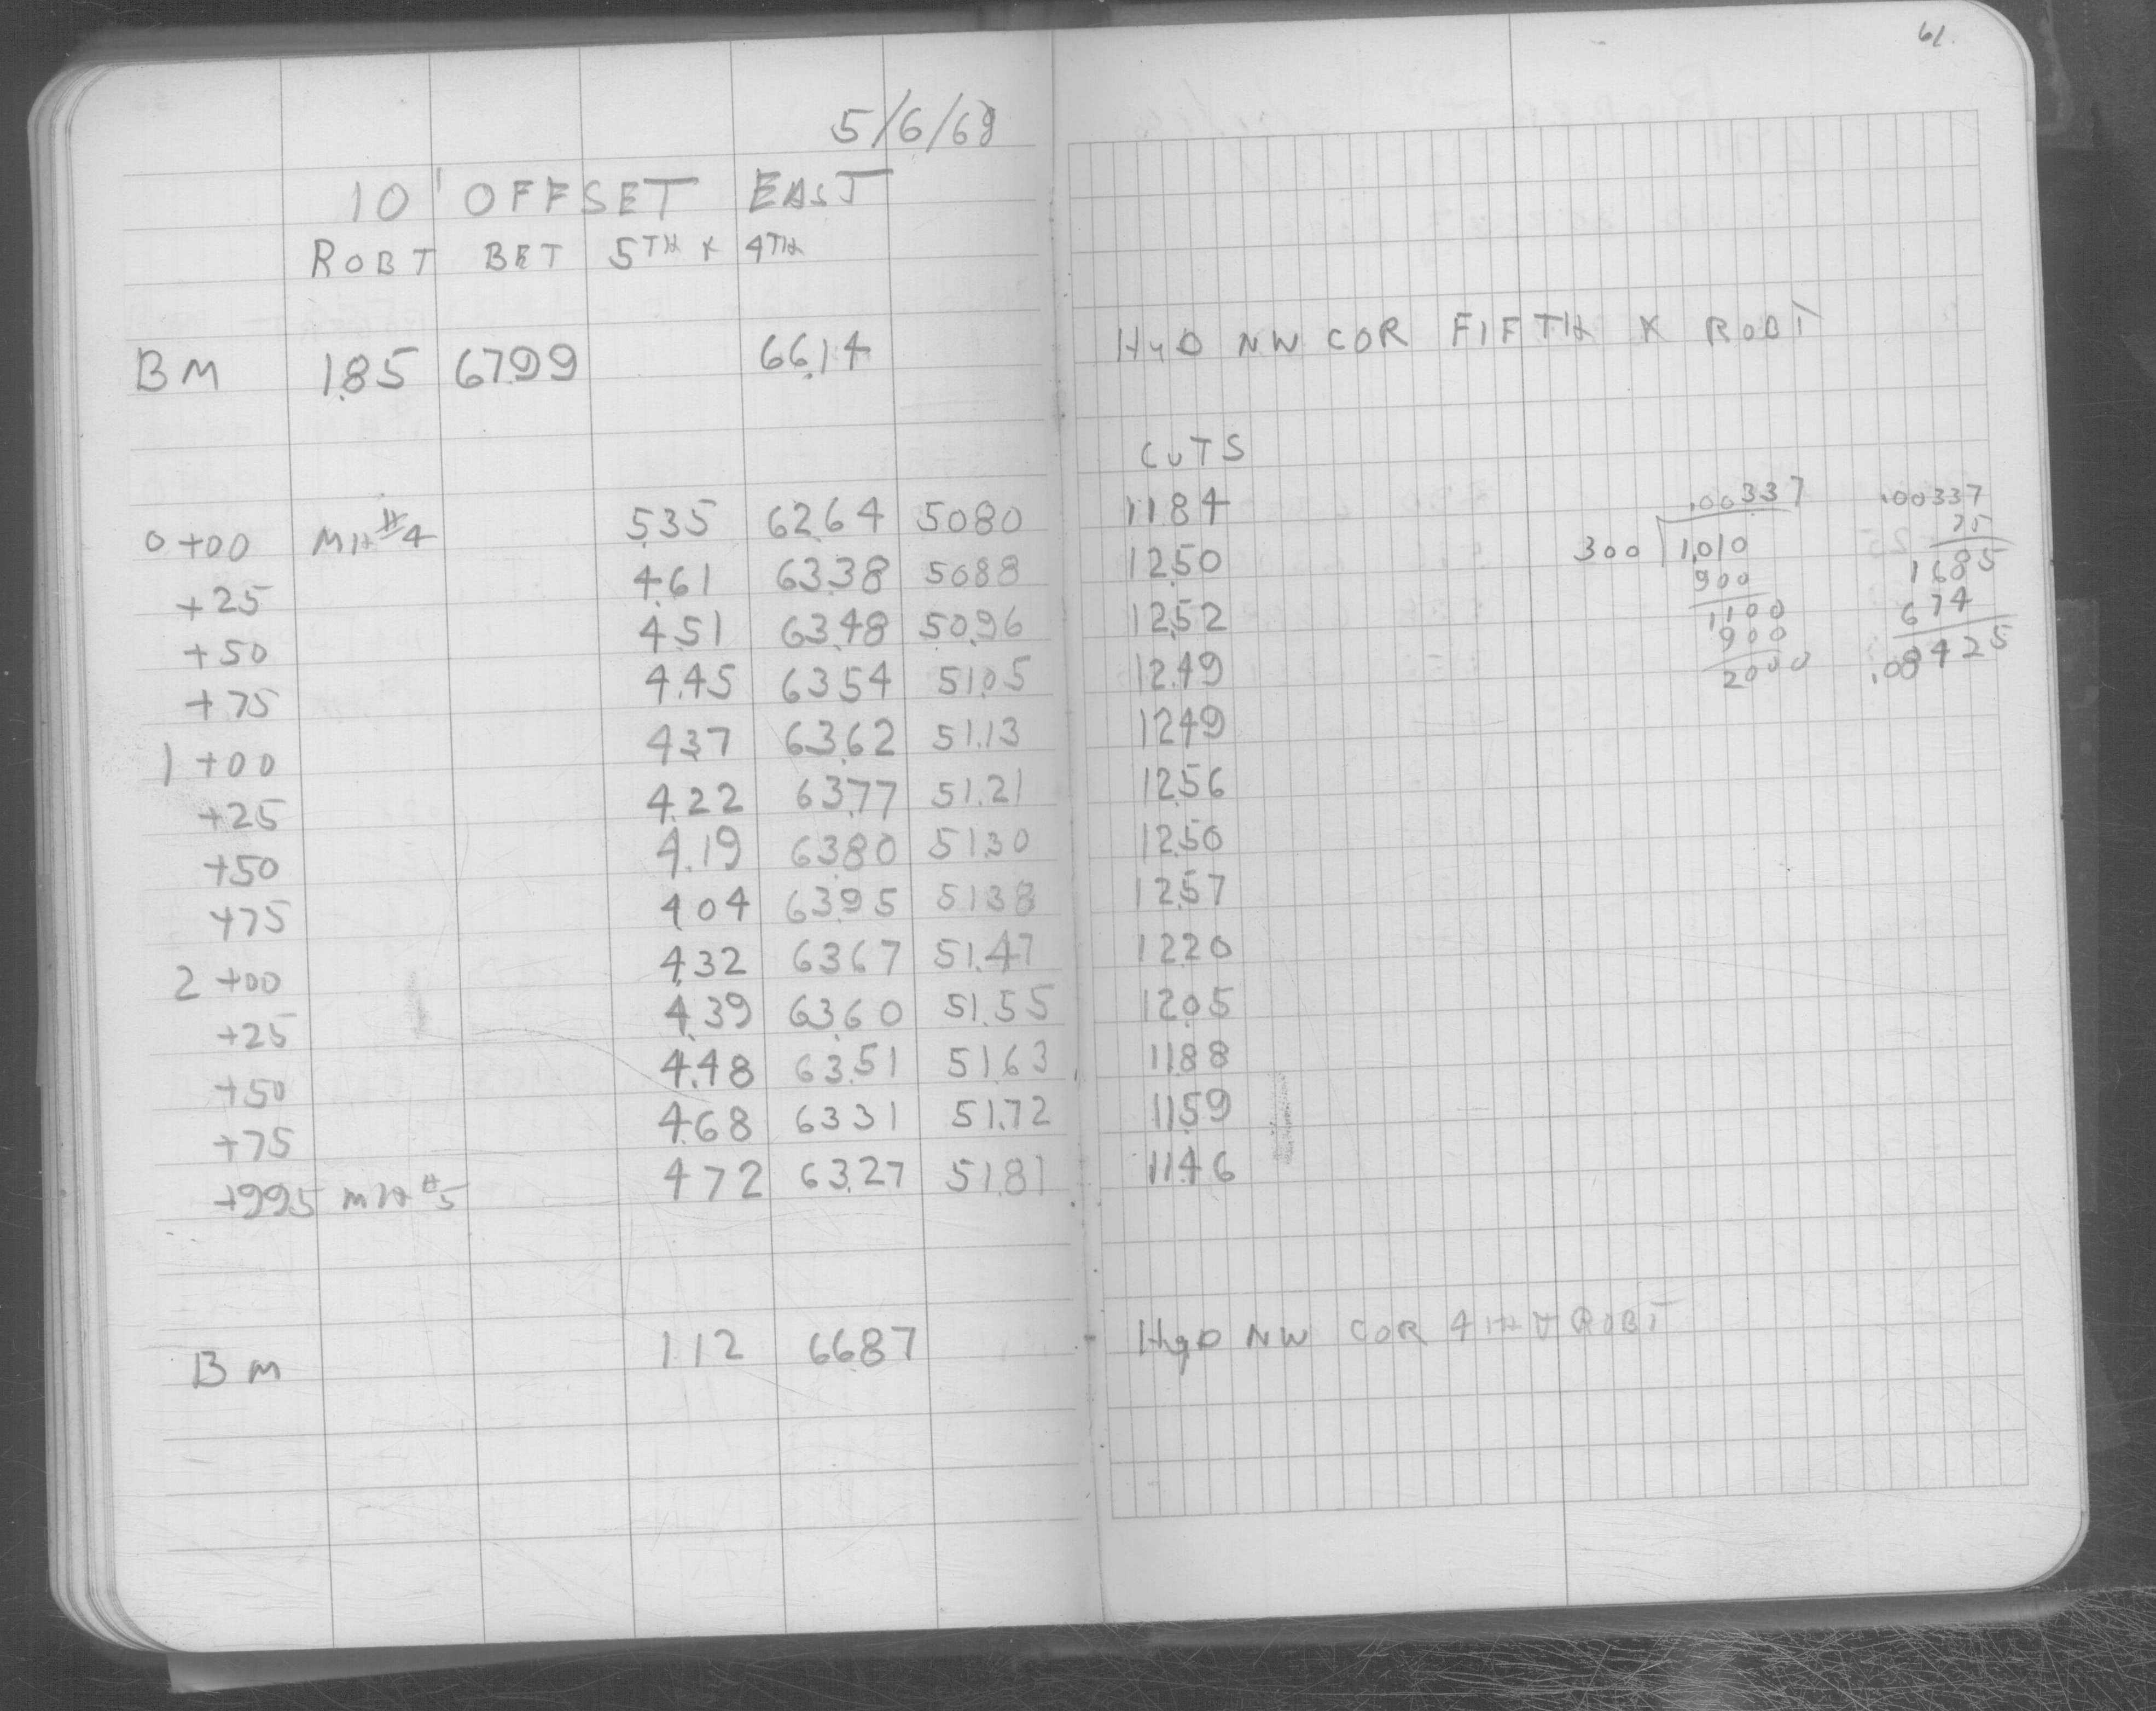 61.
5/6/69
10' OFFSET EAST
ROBT BET 5TH X 4TH
BM 1.85 67.99 66.14 HyD NW COR FIFTH X ROBT
CUTS
0+00 MH #4 5.35 62.64 50.80 11.84
+25 4.61 63.38 50.88 12.50
+50 4.51 63.48 50.96 12.52
+75 4.45 63.54 51.05 12.49
1+00 4.37 63.62 51.13 12.49
+25 4.22 63.77 51.21 12.56
+50 4.19 63.80 51.30 12.50
+75 4.04 63.95 51.38 12.57
2+00 4.32 63.67 51.47 12.20
+25 4.39 63.60 51.55 12.05
+50 4.48 63.51 51.63 11.88
+75 4.68 63.31 51.72 11.59
+99.5 MH #5 4.72 63.27 51.81 11.46
BM 1.12 66.87 HyD NW COR 4TH X ROBT
.00337
300 1.010
900
1100
900
2000
.00337
25
1685
674
.08425